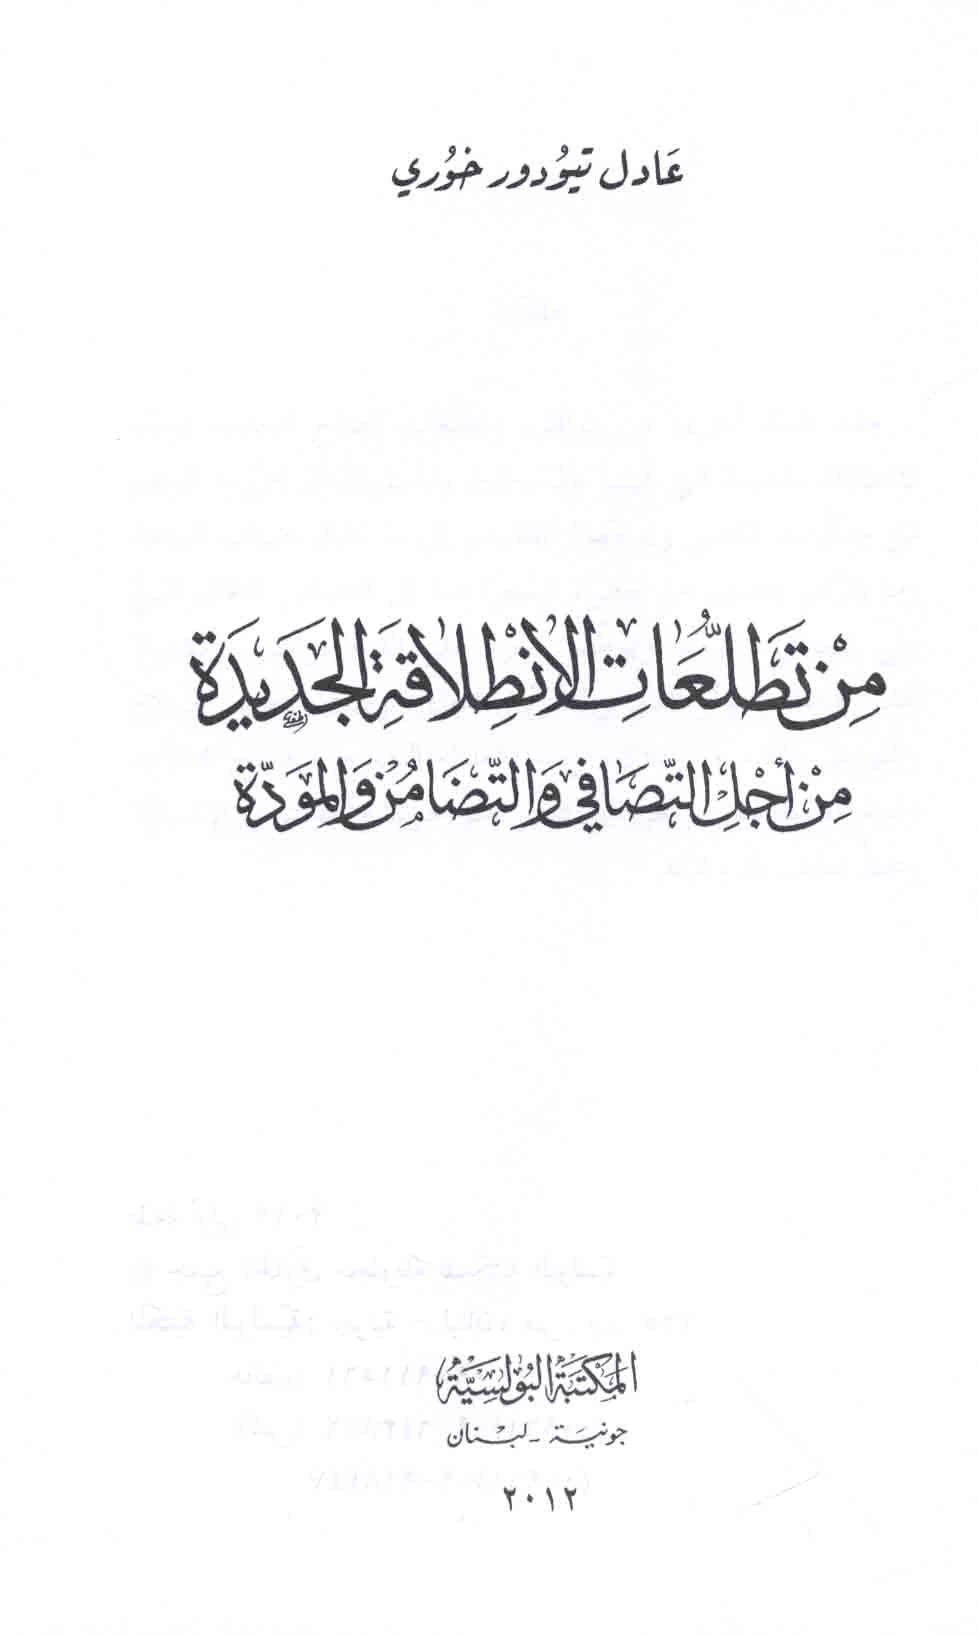 عَادل تيُودور خوُري
مِنْ تَطَلُّعَاتِ الانْطِلاقَةِ الجَديدَة
مِنْ أجْلِ التّصَافي وَالتّضَامُنْ وَالموَدّة
المكتبَة البُولسِيَّة
جونيَة - لبْنان
٢٠١٢